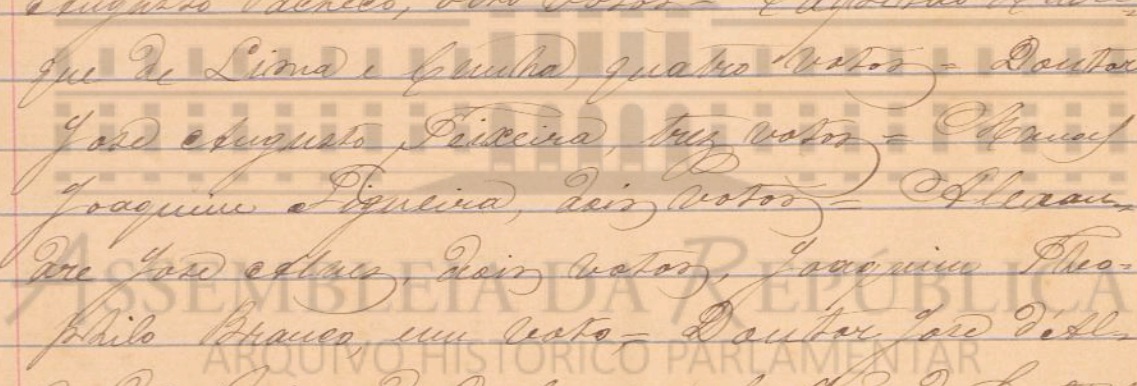 Augusto Pacheco, oito votos =
que de Lima e Cunha, quatro votos = Doutor
José Augusto Teixeira, trez votos = Manoel
Joaquim Figueira, dois votos = Alexan-
dre José Alves, dois votos, Joaquim Theo-
philo Branco, um voto, = Doutor José d'Al-
ASSEMBLEIA DA REPÚBLICA
ARQUIVO HISTÓRICO PARLAMENTAR